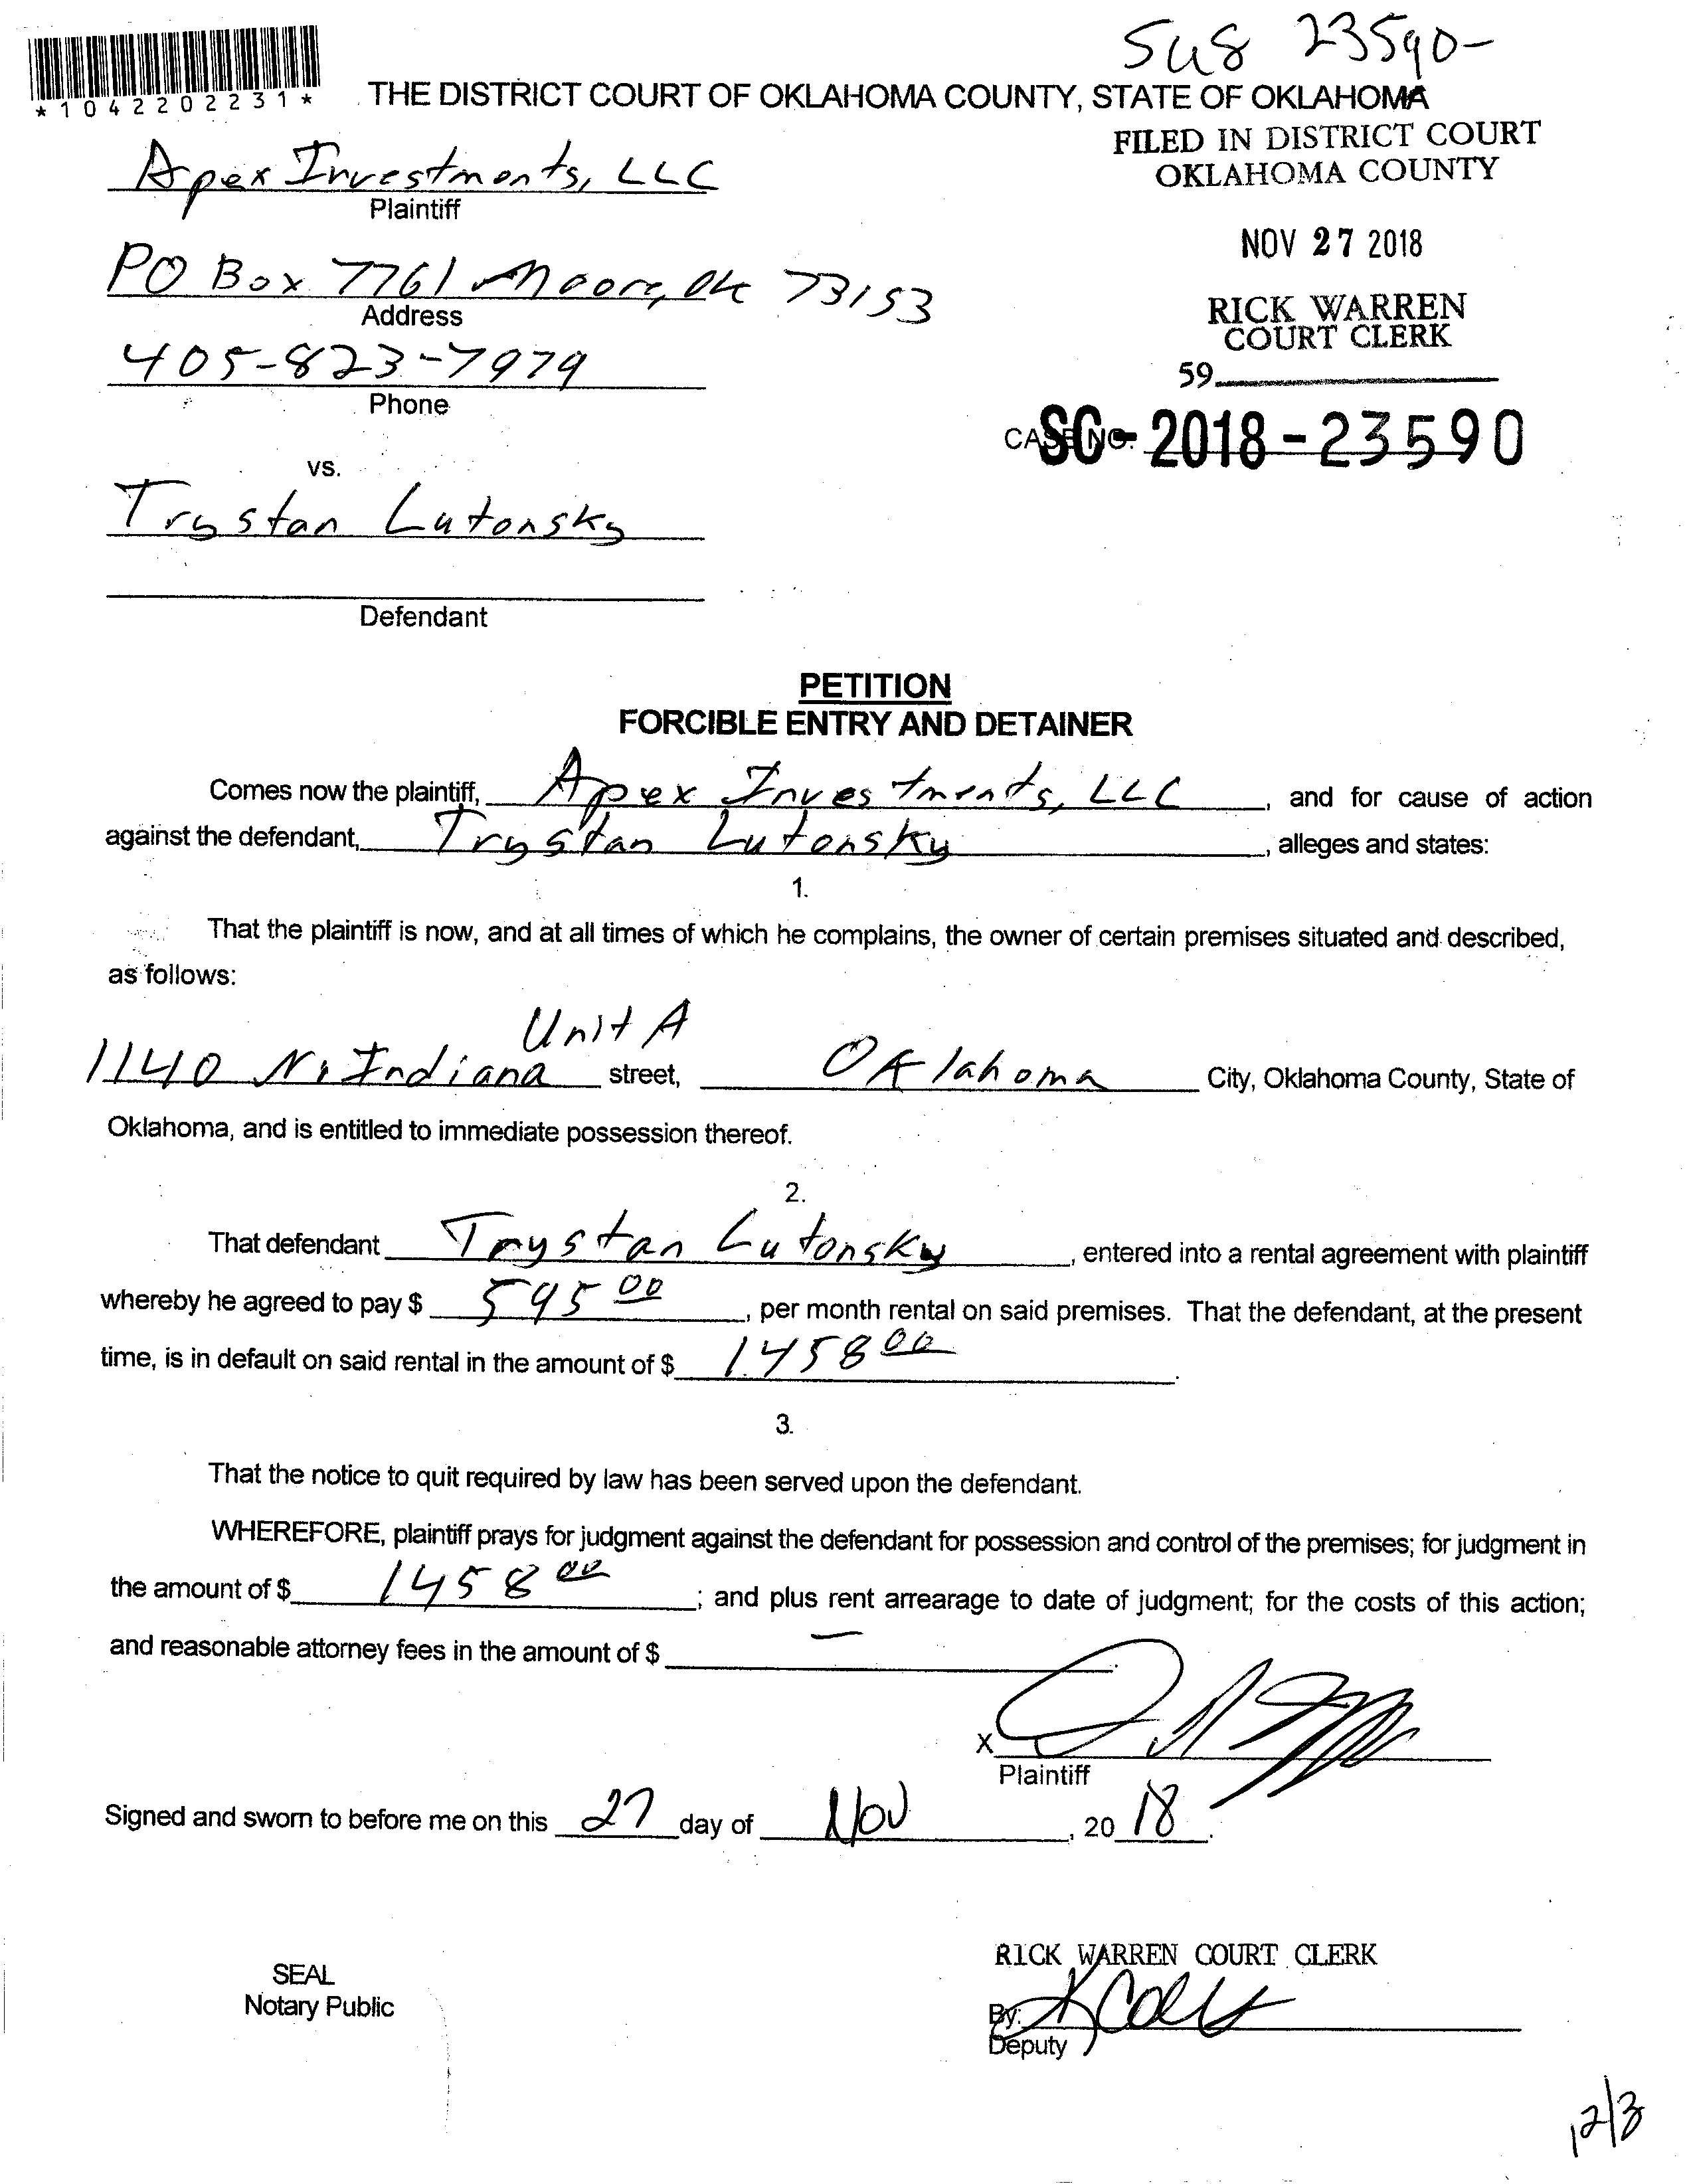 Sus 23590-
*1042202231*
THE DISTRICT COURT OF OKLAHOMA COUNTY, STATE OF OKLAHOMA
FILED IN DISTRICT COURT
OKLAHOMA COUNTY
Apex Investments, LLC
Plaintiff
NOV 27 2018
PO Box 7761 Moore, OK 73153
Address
RICK WARREN
COURT CLERK
405-823-7979
59
Phone
CASE NO. SC-2018-23590
vs.
Trystan Lutonsky
Defendant
PETITION
FORCIBLE ENTRY AND DETAINER
Comes now the plaintiff, Apex Investments, LLC, and for cause of action
against the defendant, Trystan Lutonsky, alleges and states:
1.
That the plaintiff is now, and at all times of which he complains, the owner of certain premises situated and described,
as follows:
Unit A
1140 N. Indiana street, Oklahoma City, Oklahoma County, State of
Oklahoma, and is entitled to immediate possession thereof.
2.
That defendant Trystan Lutonsky, entered into a rental agreement with plaintiff
whereby he agreed to pay $ 595 00, per month rental on said premises. That the defendant, at the present
time, is in default on said rental in the amount of $ 1458 00.
3.
That the notice to quit required by law has been served upon the defendant.
WHEREFORE, plaintiff prays for judgment against the defendant for possession and control of the premises; for judgment in
the amount of $ 1458 00; and plus rent arrearage to date of judgment; for the costs of this action;
and reasonable attorney fees in the amount of $ —.
X
Plaintiff
Signed and sworn to before me on this 27 day of Nov, 20 18.
RICK WARREN COURT CLERK
SEAL
Notary Public
By:
Deputy
12/3